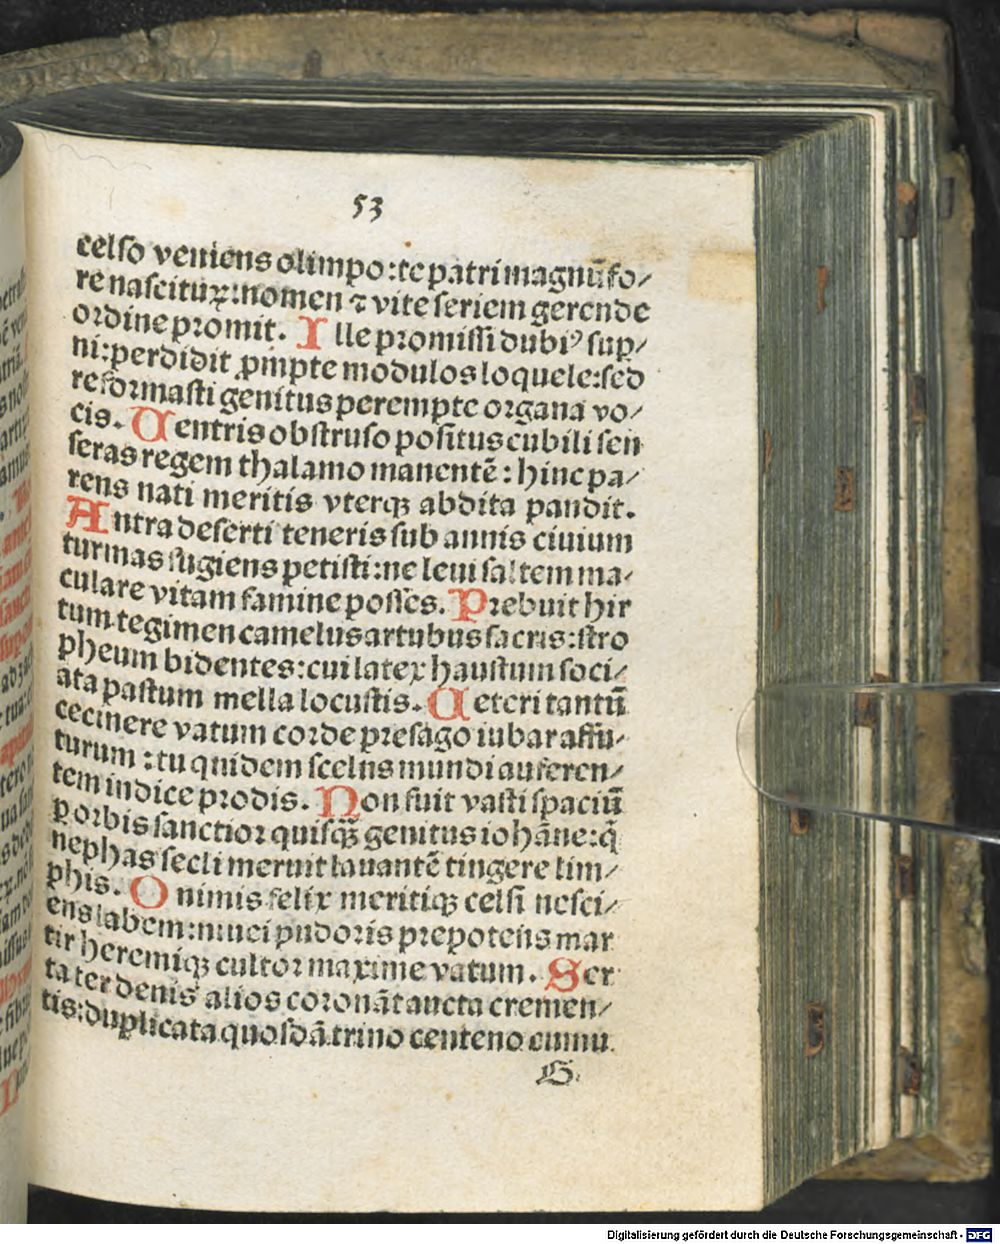 53
celſo veniens olimpo:te patri magnū fo/
re naſcituꝝ:nomen ⁊ vite ſeriem gerende
ordine promit. Ille promiſſi dubiꝰ ſup̱/
ni:perdidit ꝓmpte modulos loquele:ſed
reformaſti genitus perempte organa vo/
cis. Ventris obſtruſo poſitus cubili ſen
ſeras regem thalamo manentē: hinc pa/
rens nati meritis vterqꝫ abdita pandit.
Antra deſerti teneris ſub annis ciuium
turmas fugiens petiſti:ne leui ſaltem ma/
culare vitam famine poſſes. Prebuit hir
tum tegimen camelus artubus ſacris:ſtro
pheum bidentes:cui latex hauſtum ſoci/
ata paſtum mella locuſtis. Ceteri tantū
cecinere vatum corde preſago iubar affu/
turum:tu quidem ſcelus mundi auferen/
tem indice prodis. Non fuit vaſti ſpaciū
ꝑ orbis ſanctior quiſqꝫ genitus iohāne:q̄
nephas ſecli meruit lauantē tingere lim/
phis. O nimis felix meritiqꝫ celſi neſci/
ens labem:niuei pudoris prepotens mar
tir heremiqꝫ cultor maxime vatum. Ser
ta ter denis alios coronāt aucta cremen/
tis:duplicata quoſdā trino centeno cumu
G
Digitalisierung gefördert durch die Deutsche Forschungsgemeinschaft - DFG